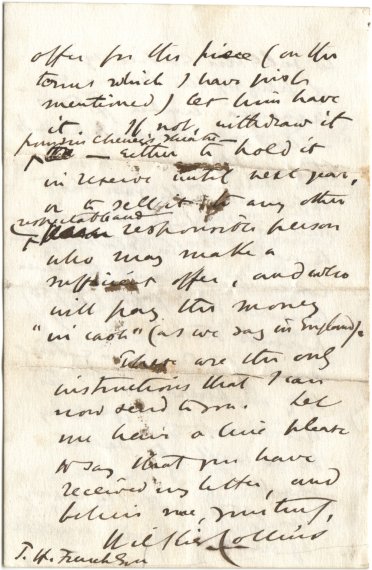 offer for this piece (on the
terms which I have just
mentioned) let him have
it. If not, withdraw it
from Mr Cheney's theatre
— Either to hold it
in reserve until next year,
or to sell it to any other
respectable and
responsible person
who may make a
sufficient offer, and who
will pay the money
"in cash" (as we say in England).
These are the only
instructions that I can
now send to you. Let
me have a line please
to say that you have
received my letter, and
believe me, yours truly,
Wilkie Collins
T. H. French Esqr